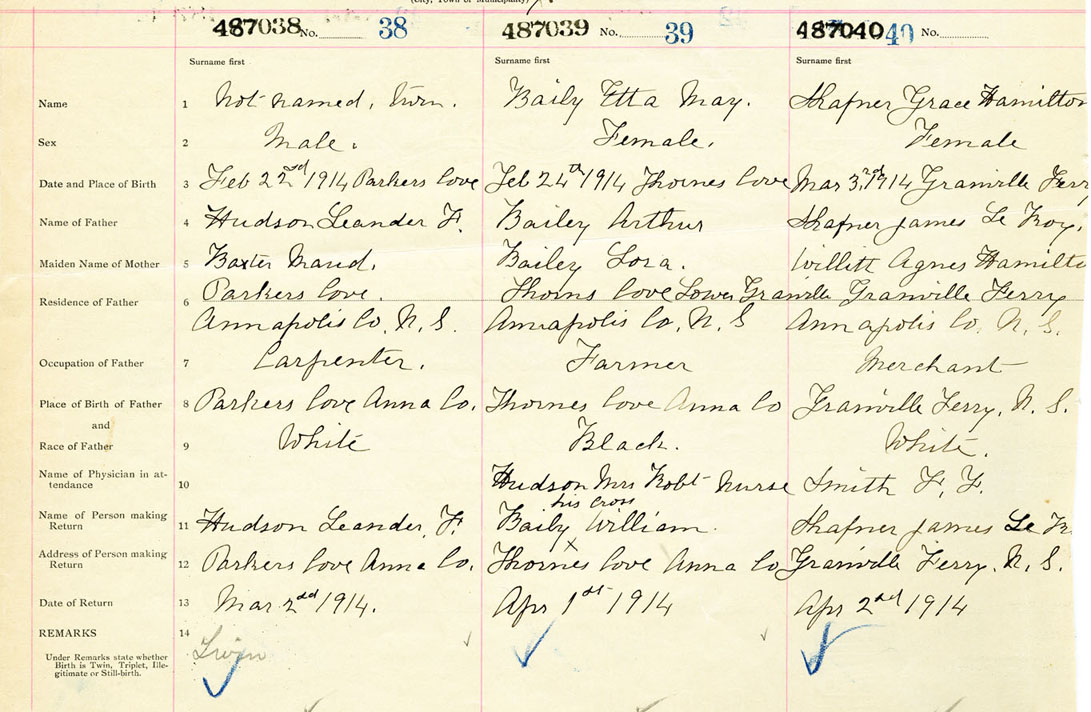 (City, Town or Municipality)
487038 No. 38 487039 No. 39 487040 40 No.
Surname first Surname first Surname first
Name 1 Not named, twin. Baily Etta May. Shafner Grace Hamilton
Sex 2 Male. Female. Female
Date and Place of Birth 3 Feb 22nd 1914 Parkers Cove Feb 24th 1914 Thornes Cove Mar 3rd 1914 Granville Ferry
Name of Father 4 Hudson Leander F. Bailey Arthur Shafner James Le Roy.
Maiden Name of Mother 5 Baxter Maud. Bailey Lora. Willitt Agnes Hamilto
Residence of Father 6 Parkers Cove. Thorns Cove Lower Granville Granville Ferry
Annapolis Co. N. S. Annapolis Co. N. S Annapolis Co. N. S.
Occupation of Father 7 Carpenter. Farmer Merchant
Place of Birth of Father 8 Parkers Cove Anna Co. Thornes Cove Anna Co Granville Ferry, N. S.
and
Race of Father 9 White Black. White.
Name of Physician in at-
tendance 10 Hudson Mrs Robt Nurse Smith F. F.
his cross
Name of Person making
Return 11 Hudson Leander, F. Baily William. Shafner James Le R
x
Address of Person making
Return 12 Parkers Cove Anna Co. Thornes Cove Anna Co Granville Ferry. N. S.
Date of Return 13 Mar 2nd 1914. Apr 1st 1914 Apr 2nd 1914
REMARKS 14 Twin
Under Remarks state whether
Birth is Twin, Triplet, Ille-
gitimate or Still-birth.